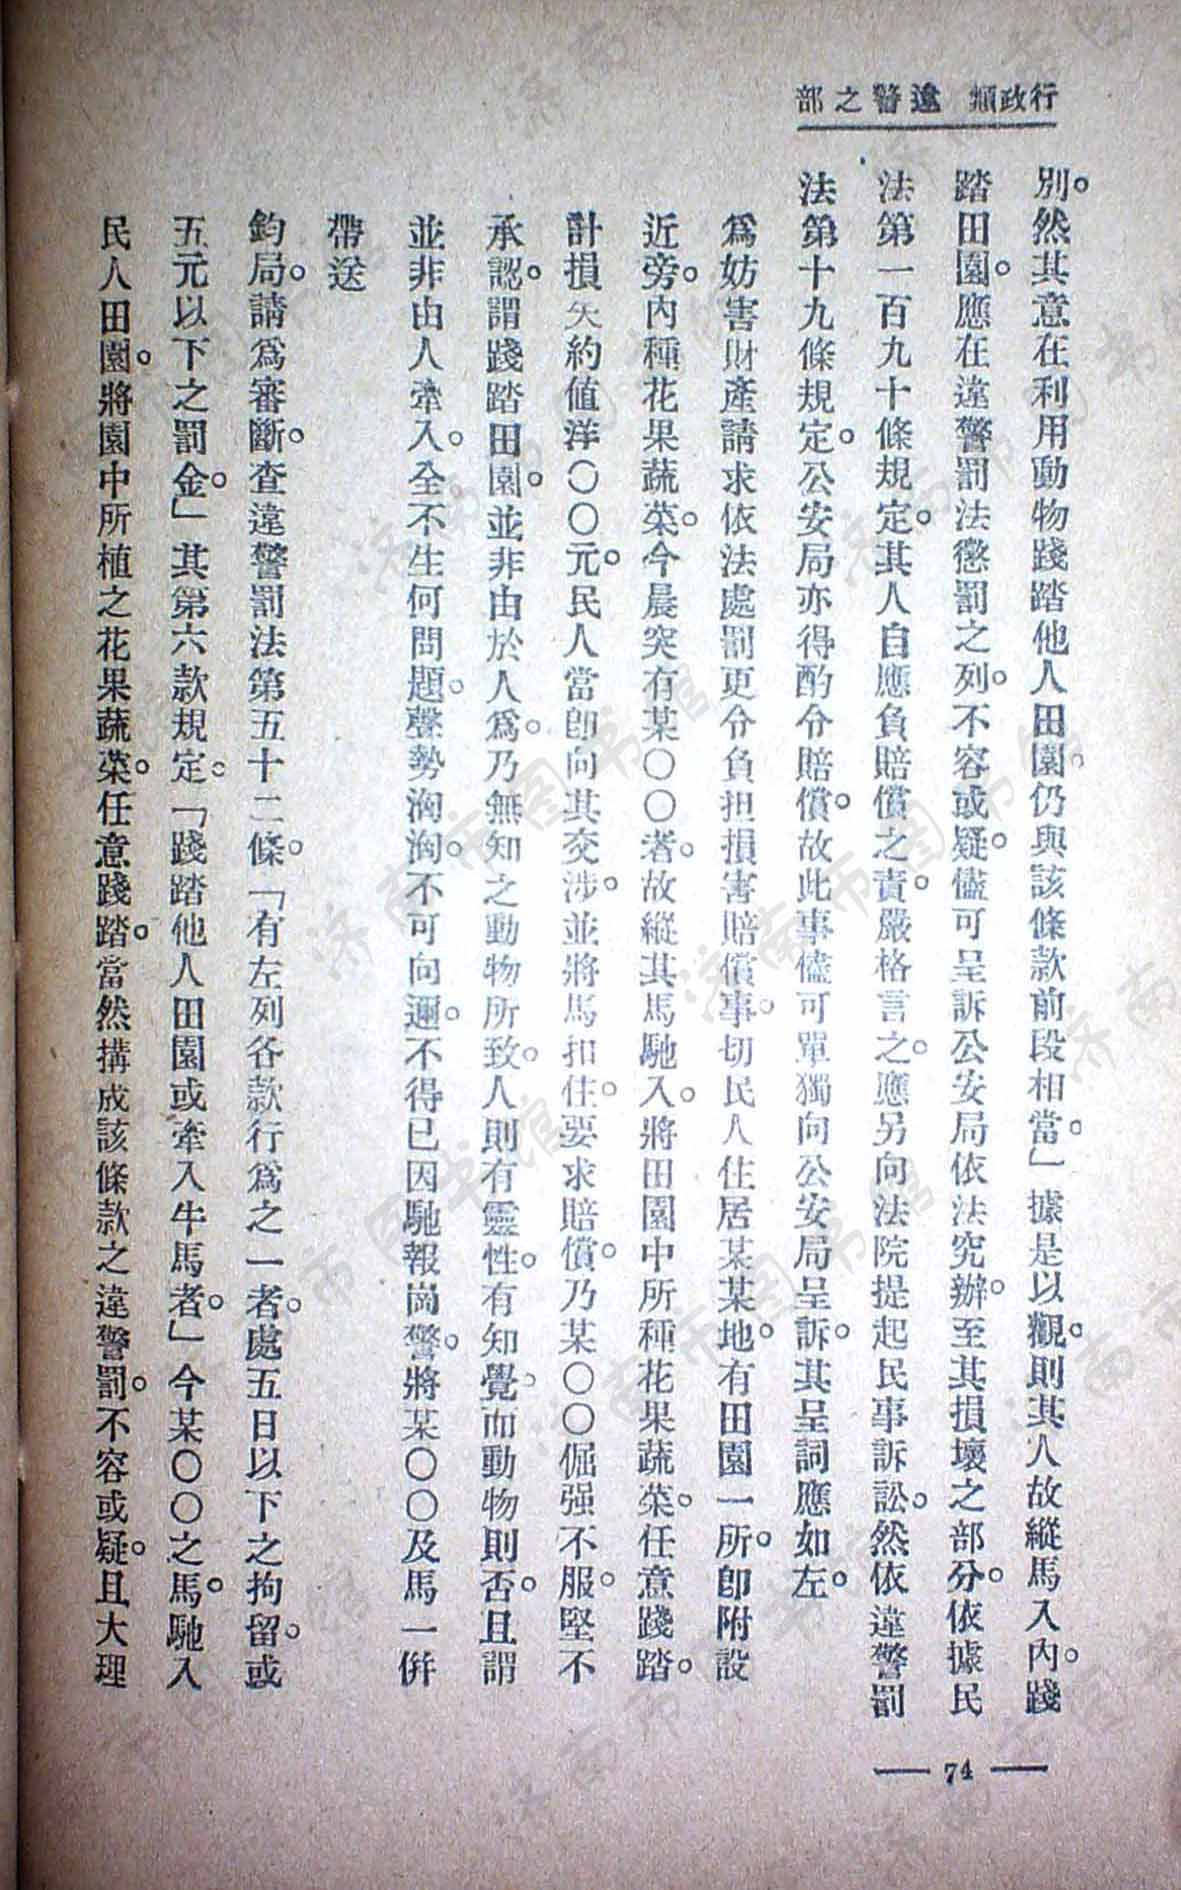 行政類 違警之部
別。然其意在利用動物踐踏他人田園。仍與該條款前段相當。」據是以觀。則其人故縱馬入內。踐
踏田園。應在違警罰法懲罰之列。不容或疑。儘可呈訴公安局依法究辦。至其損壞之部分。依據民
法第一百九十條規定。其人自應負賠償之責。嚴格言之。應另向法院提起民事訴訟。然依違警罰
法第十九條規定。公安局亦得酌令賠償。故此事儘可單獨向公安局呈訴。其呈詞應如左。
爲妨害財產請求依法處罰更令負担損害賠償事。切民人住居某某地。有田園一所。卽附設
近旁。內種花果蔬菜。今晨突有某〇〇者。故縱其馬馳入。將田園中所種花果蔬菜。任意踐踏。
計損失約值洋〇〇元。民人當卽向其交涉。並將馬扣住。要求賠償。乃某〇〇倔强不服。堅不
承認。謂踐踏田園。並非由於人爲。乃無知之動物所致。人則有靈性。有知覺。而動物則否。且謂
並非由人牽入。全不生何問題。聲勢洶洶。不可向邇。不得已因馳報崗警。將某〇〇及馬一併
帶送
鈞局。請爲審斷。查違警罰法第五十二條。「有左列各款行爲之一者。處五日以下之拘留。或
五元以下之罰金。」其第六款規定。「踐踏他人田園或牽入牛馬者。」今某〇〇之馬。馳入
民人田園。將園中所植之花果蔬菜。任意踐踏。當然搆成該條款之違警罰。不容或疑。且大理
— 74 —
濟南市图书馆